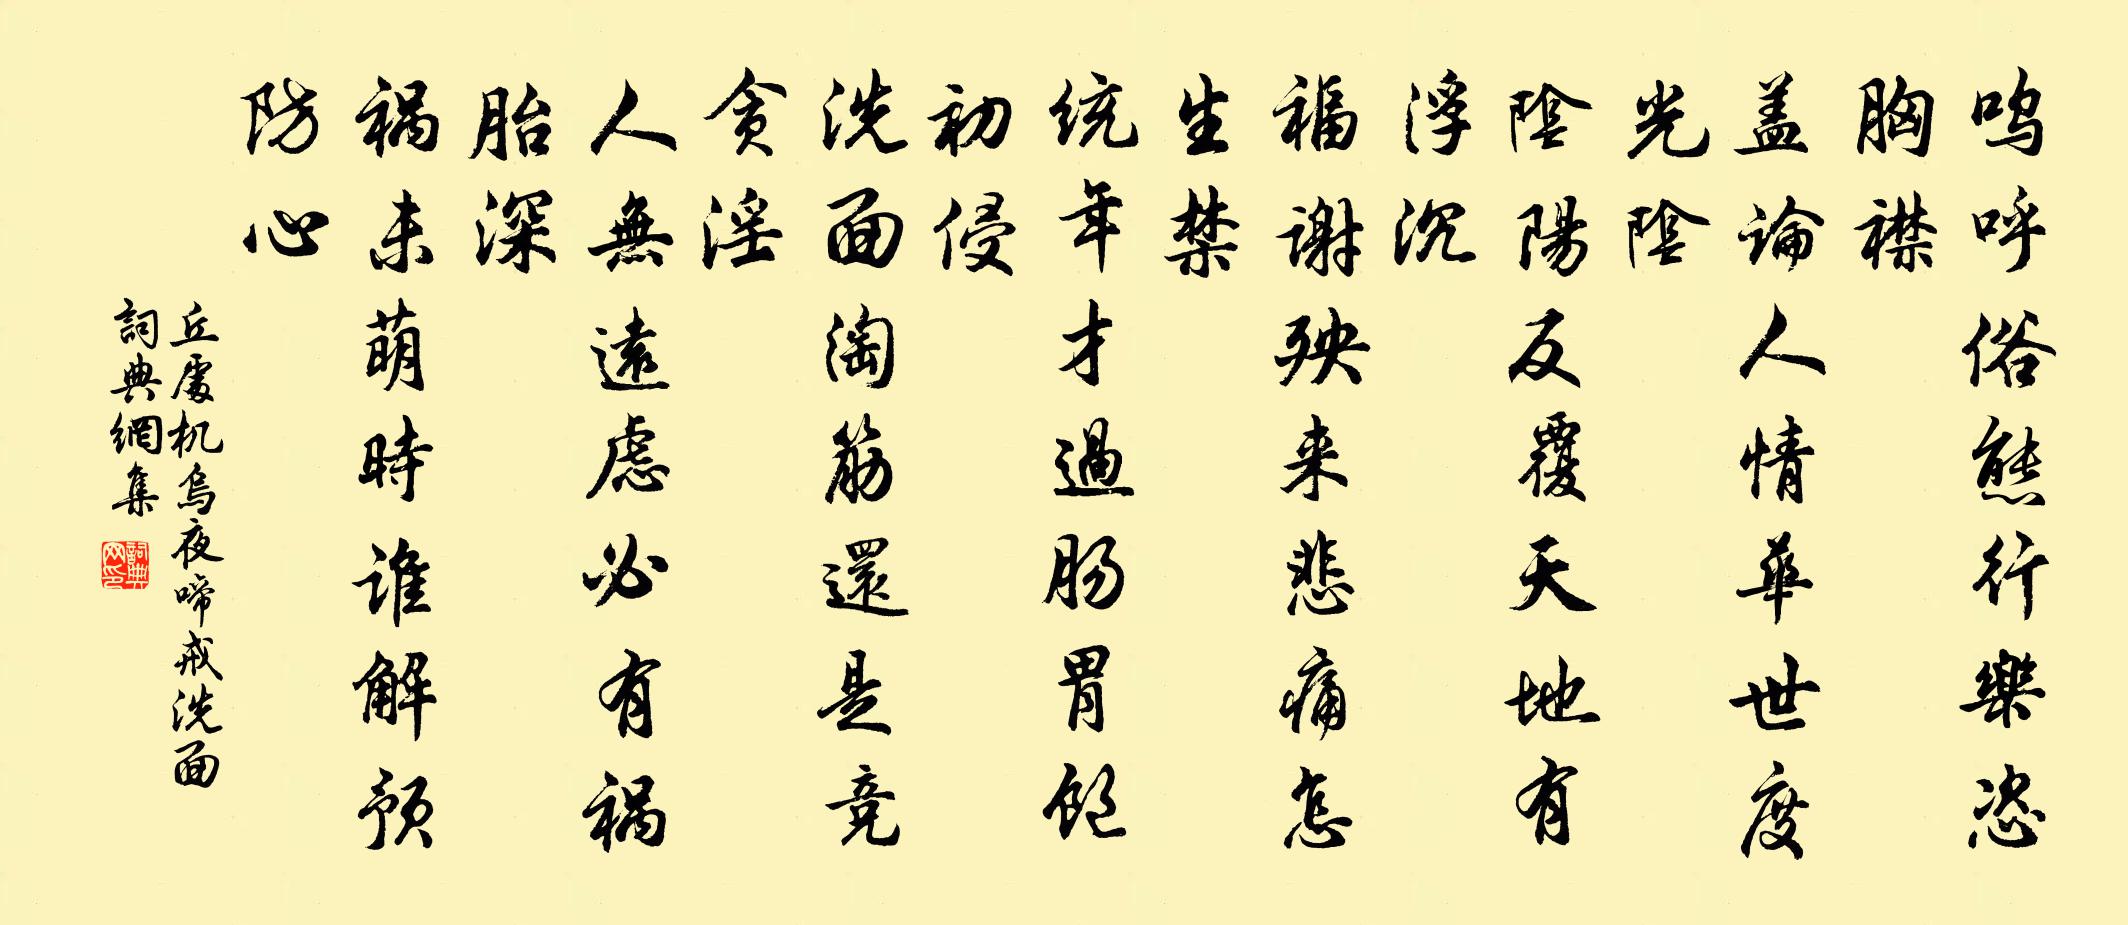 呜呼俗態行樂恣
胸襟
盖論人情華世度
光陰
陰陽反覆天地有
浮沉
福謝殃来悲痛怎
生禁
统年才過肠胃飽
初侵
洗面淘筋還是竞
貪淫
人無遠慮必有祸
胎深
祸未萌時谁解预
防心
丘處机烏夜啼戒洗面
詞典網集
詞典
网印